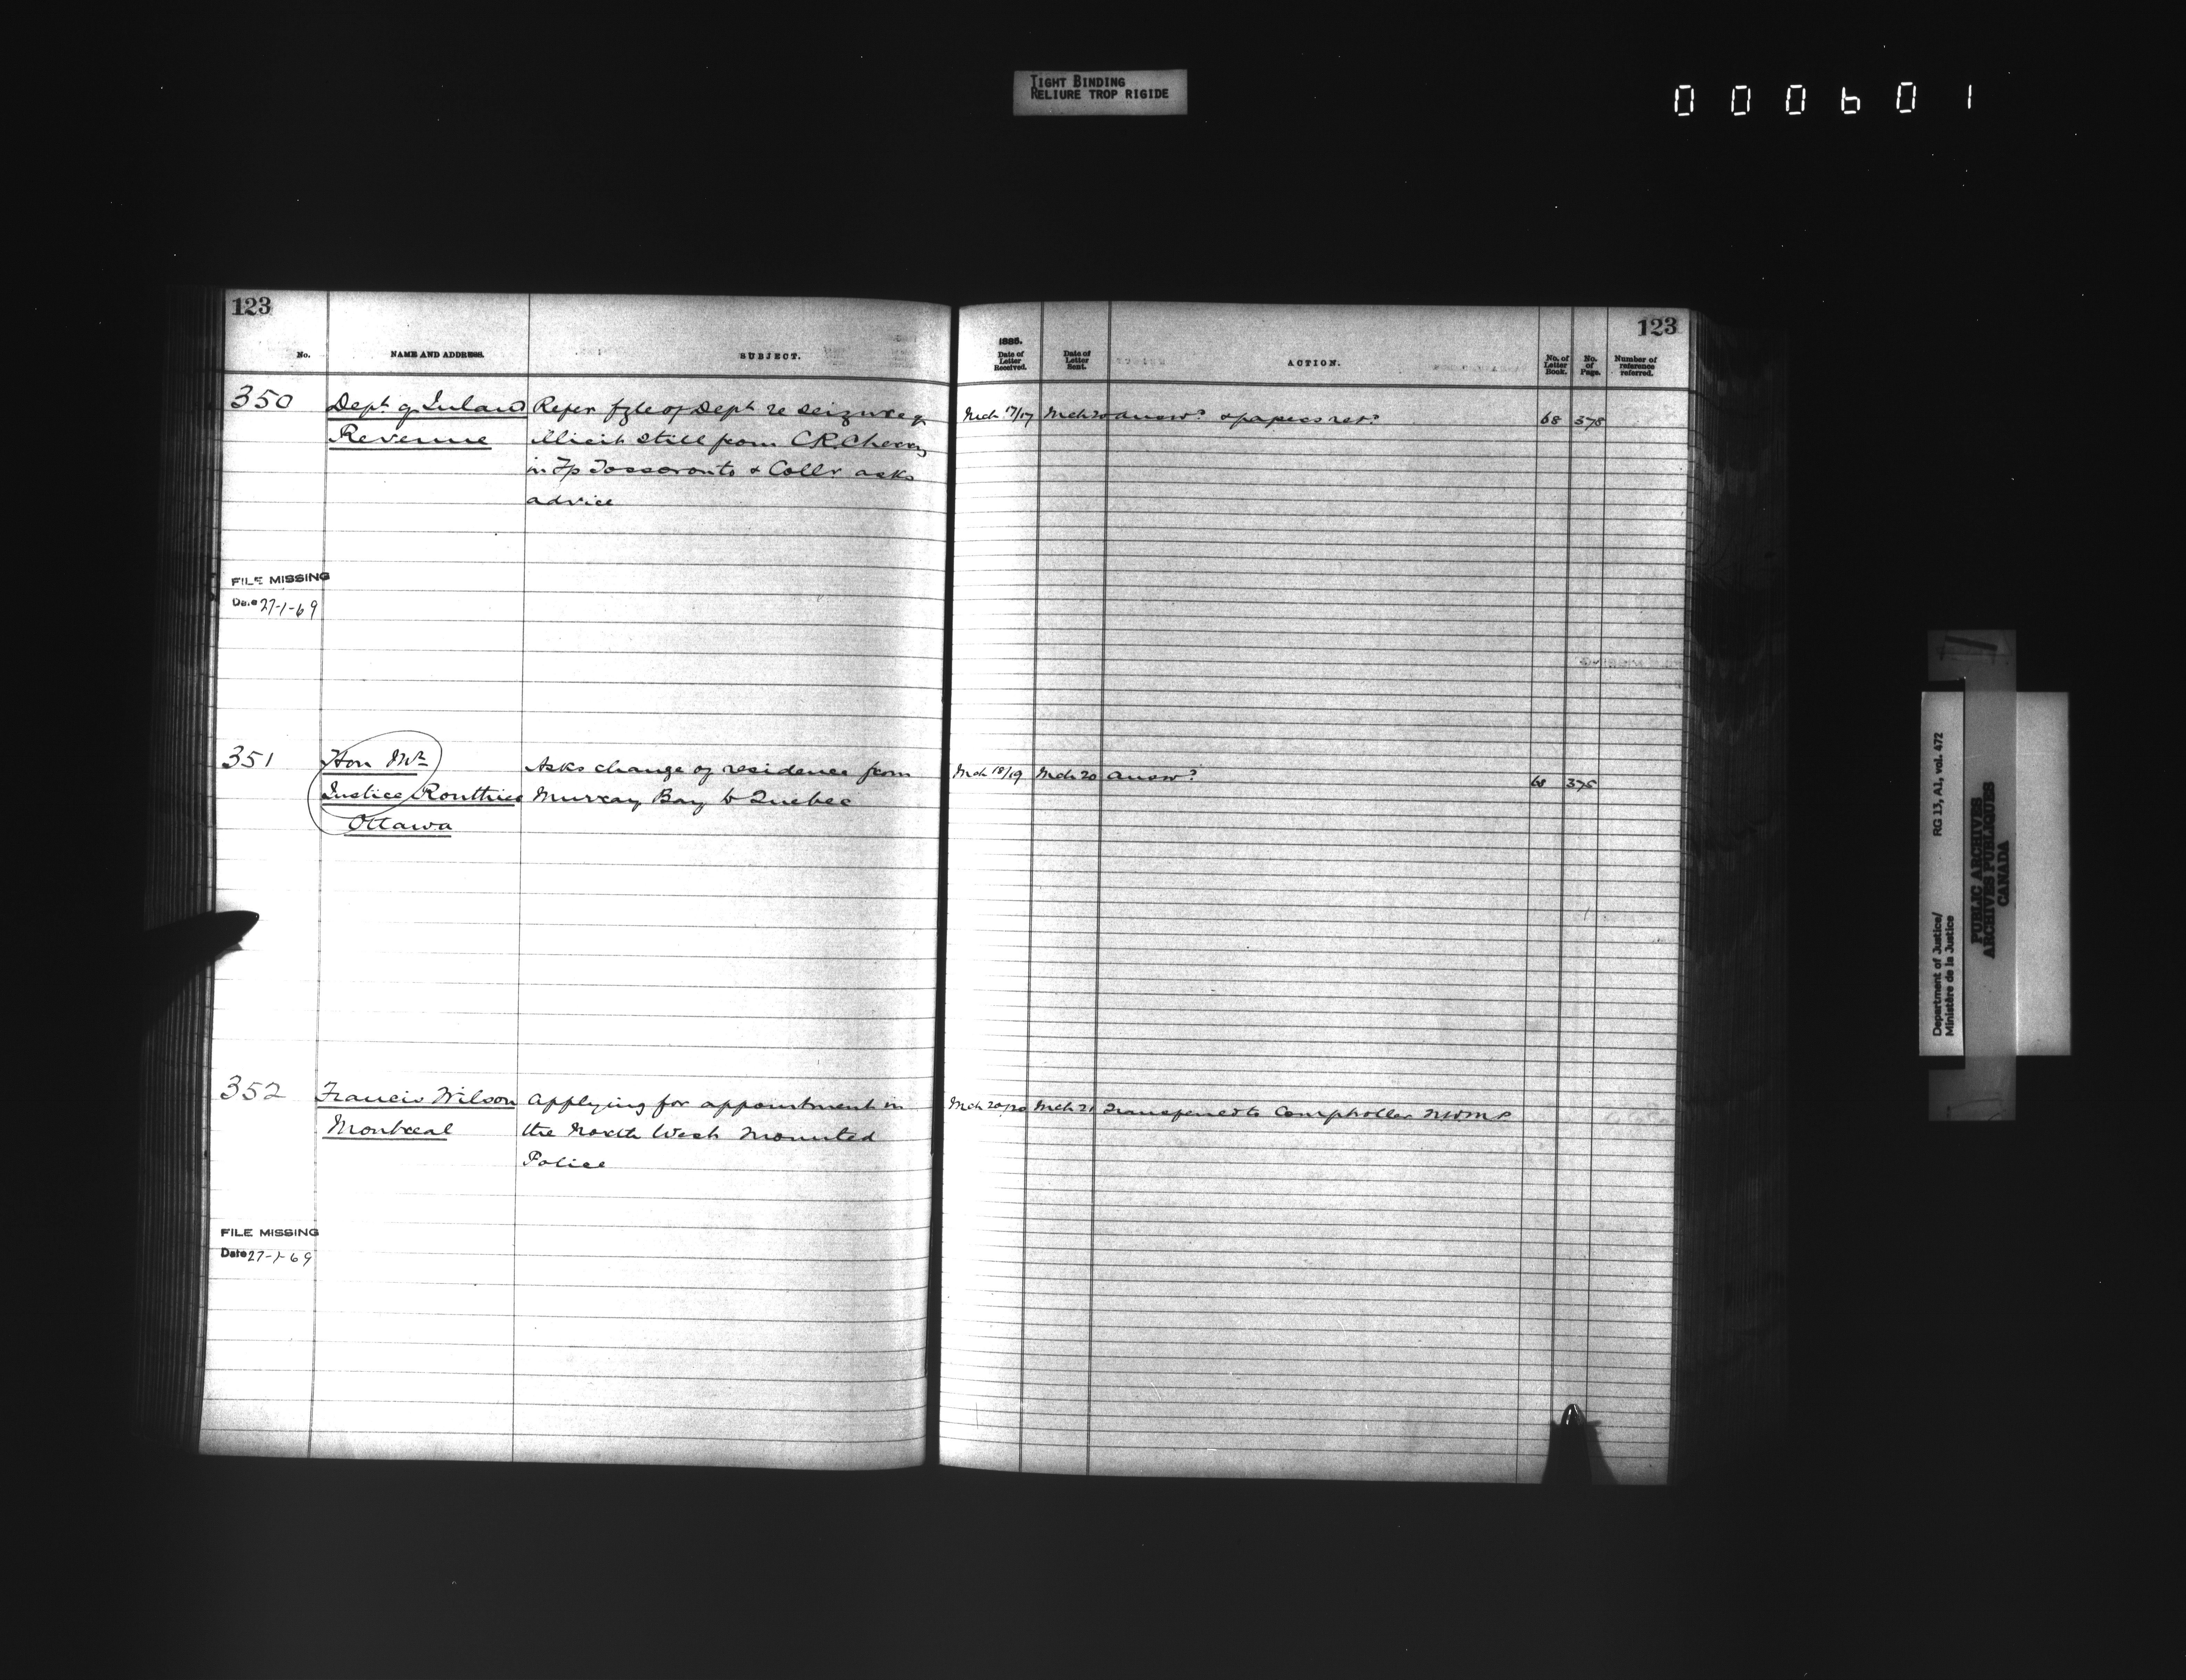 TIGHT BINDING
RELIURE TROP RIGIDE
000601
123
No.
NAME AND ADDRESS.
SUBJECT.
350
Dept of Inland
Revenue
Refer fyle of Dept re seizure of
illicit still from C R Cherry
in Tp Tossoronto & Collr asks
advice
FILE MISSING
Date 27-1-69
351
Hon Mr
Justice Routhier
Ottawa
Asks change of residence from
Murray Bay to Quebec
352
Francis Wilson
Montreal
Applying for appointment in
the North West Mounted
Police
FILE MISSING
Date 27-1-69
123
1886.
Date of Letter Received.
Date of Letter Sent.
ACTION.
No. of Letter Book.
No. of Page.
Number of reference referred.
Mch 17/17 Mch 20 answd & papers retd 68 378
Mch 18/19 Mch 20 answd 68
Mch 20/20 Mch 21 Transferred to Comptroller NWMP
Department of Justice/ RG 13, A1, vol. 472
Ministère de la Justice
PUBLIC ARCHIVES
ARCHIVES PUBLIQUES
CANADA